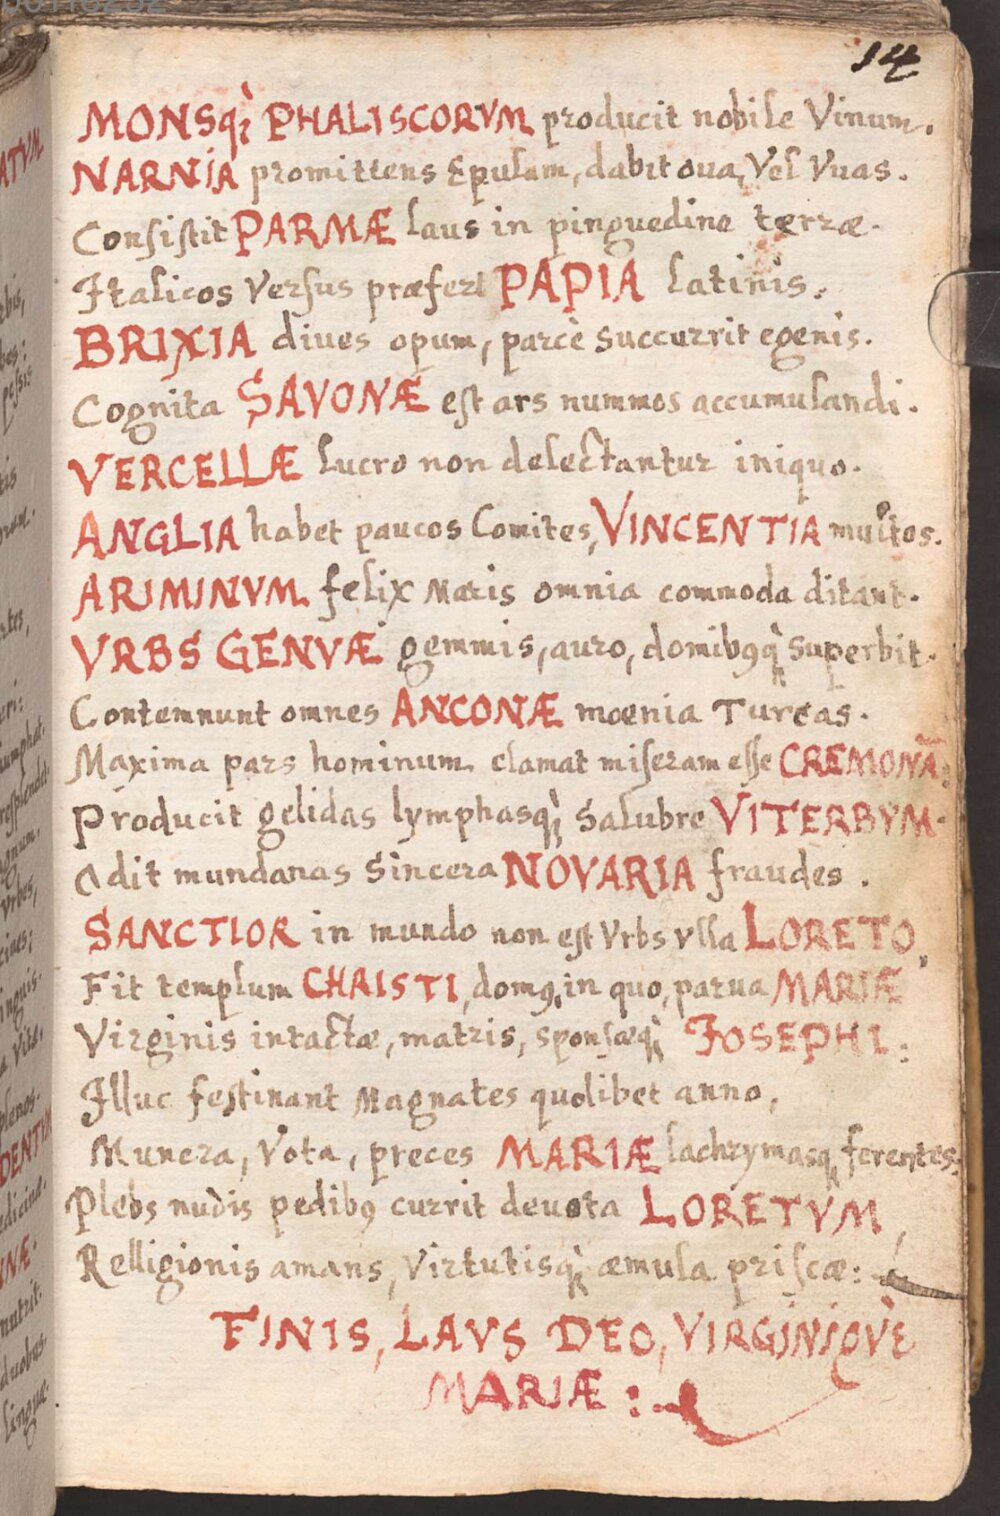 14
MONSq; PHALISCORVM producit nobile Vinum.
NARNIA promittens Epulum, dabit oua, Vel Vuas.
Consistit PARMÆ laus in pinguedine terræ.
Italicos Versus præfert PAPIA latinis.
BRIXIA diues opum, parcè succurrit egenis.
Cognita SAVONÆ est ars nummos accumulandi.
VERCELLÆ lucro non delectantur iniquo.
ANGLIA habet paucos Comites, VINCENTIA multos.
ARIMINVM felix Maris omnia commoda ditant.
VRBS GENVÆ gemmis, auro, domib9q; superbit.
Contemnunt omnes ANCONÆ moenia Turcas.
Maxima pars hominum clamat miseram esse CREMONĀ:
Producit gelidas lymphasq; salubre VITERBVM.
Odit mundanas sincera NOVARIA fraudes.
SANCTIOR in mundo non est Vrbs vlla LORETO,
Fit templum CHRISTI, dom9, in quo, parua MARIÆ
Virginis intactæ, matris, sponsæq; JOSEPHI:
Illuc festinant Magnates quolibet anno,
Munera, Vota, preces MARIÆ lachrymasq; ferentes:
Plebs nudis pedib9 currit deuota LORETVM,
Relligionis amans, Virtutisq; æmula priscæ:
FINIS, LAVS DEO, VIRGINIQVE
MARIÆ: